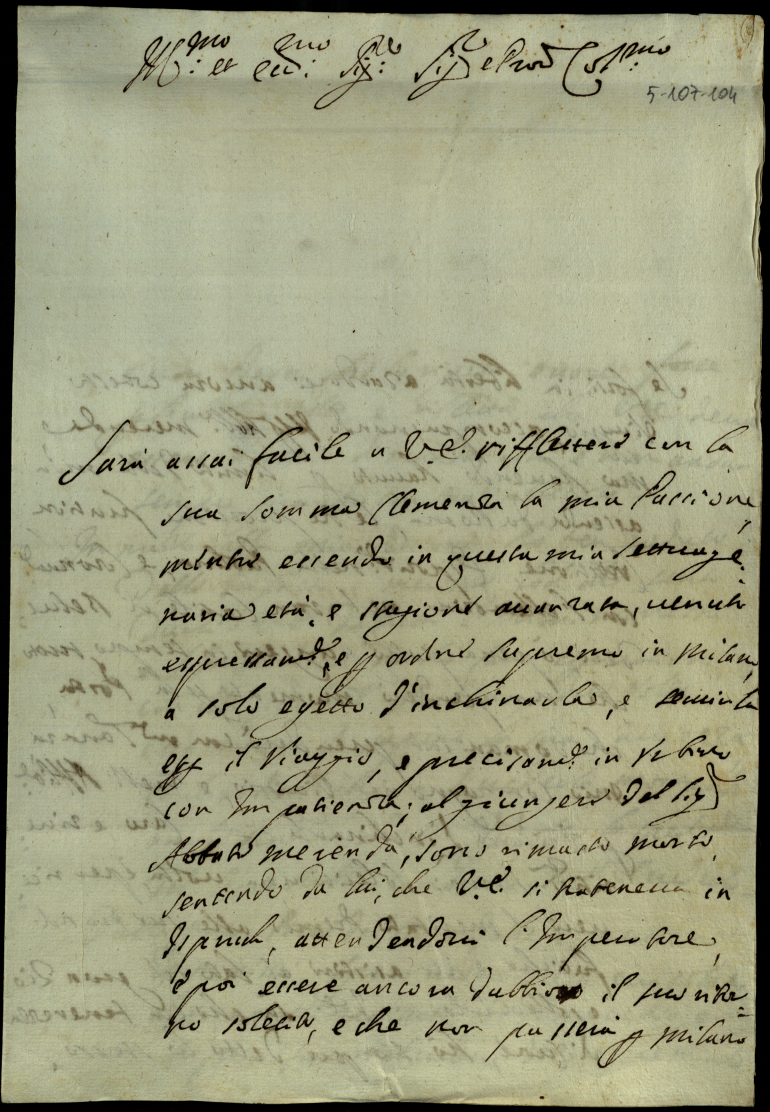 Ill.mo et ecc.mo Sig.re Sig.re e Pron Col.mo
5-107-104
Sarà assai facile a V.E. rifflettere con la
sua somma Clemenza la mia Passione,
mentre essendo in questa mia settuage
naria età, e stagione avanzata, venuto
espressam.te, e p ordine supremo in Milano,
a solo effetto d'inchinarla, e servirla
il Viaggio, e precisam.te in
con Impacienza; al giungere del Sig.r
Abbate merenda, sono rimasto morto,
sentendo da lui, che V.E. si trateneva in
Ispruch, attendendovi l'Imperatore,
e poi essere ancora dubbioso il suo ritor=
no solecito, e che non passerà p milano